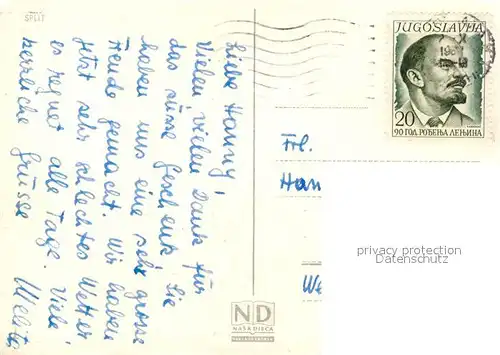 SPLIT
Liebe Hanny!
Vielen vielen Dank für
das süsse Geschenk. Sie
haben uns eine sehr grosse
Freude gemacht. Wir haben
jetzt sehr schlechtes Wetter
es regnet alle Tage. Viele
herzliche Grüsse Melita
JUGOSLAVIJA
20
90 ГОД. РОЂЕЊА ЛЕЊИНА
Frl.
Han
We
privacy protection
Datenschutz
ND
NAŠA DJECA